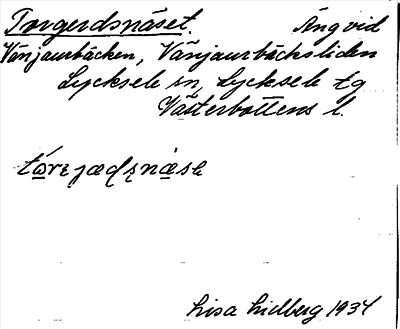 Torgerdsnäset. Äng vid
Vänjaurbäcken, Vänjaurbäcksliden
Lycksele sn, Lycksele tg
Västerbottens l.
Lisa Lidberg 1934